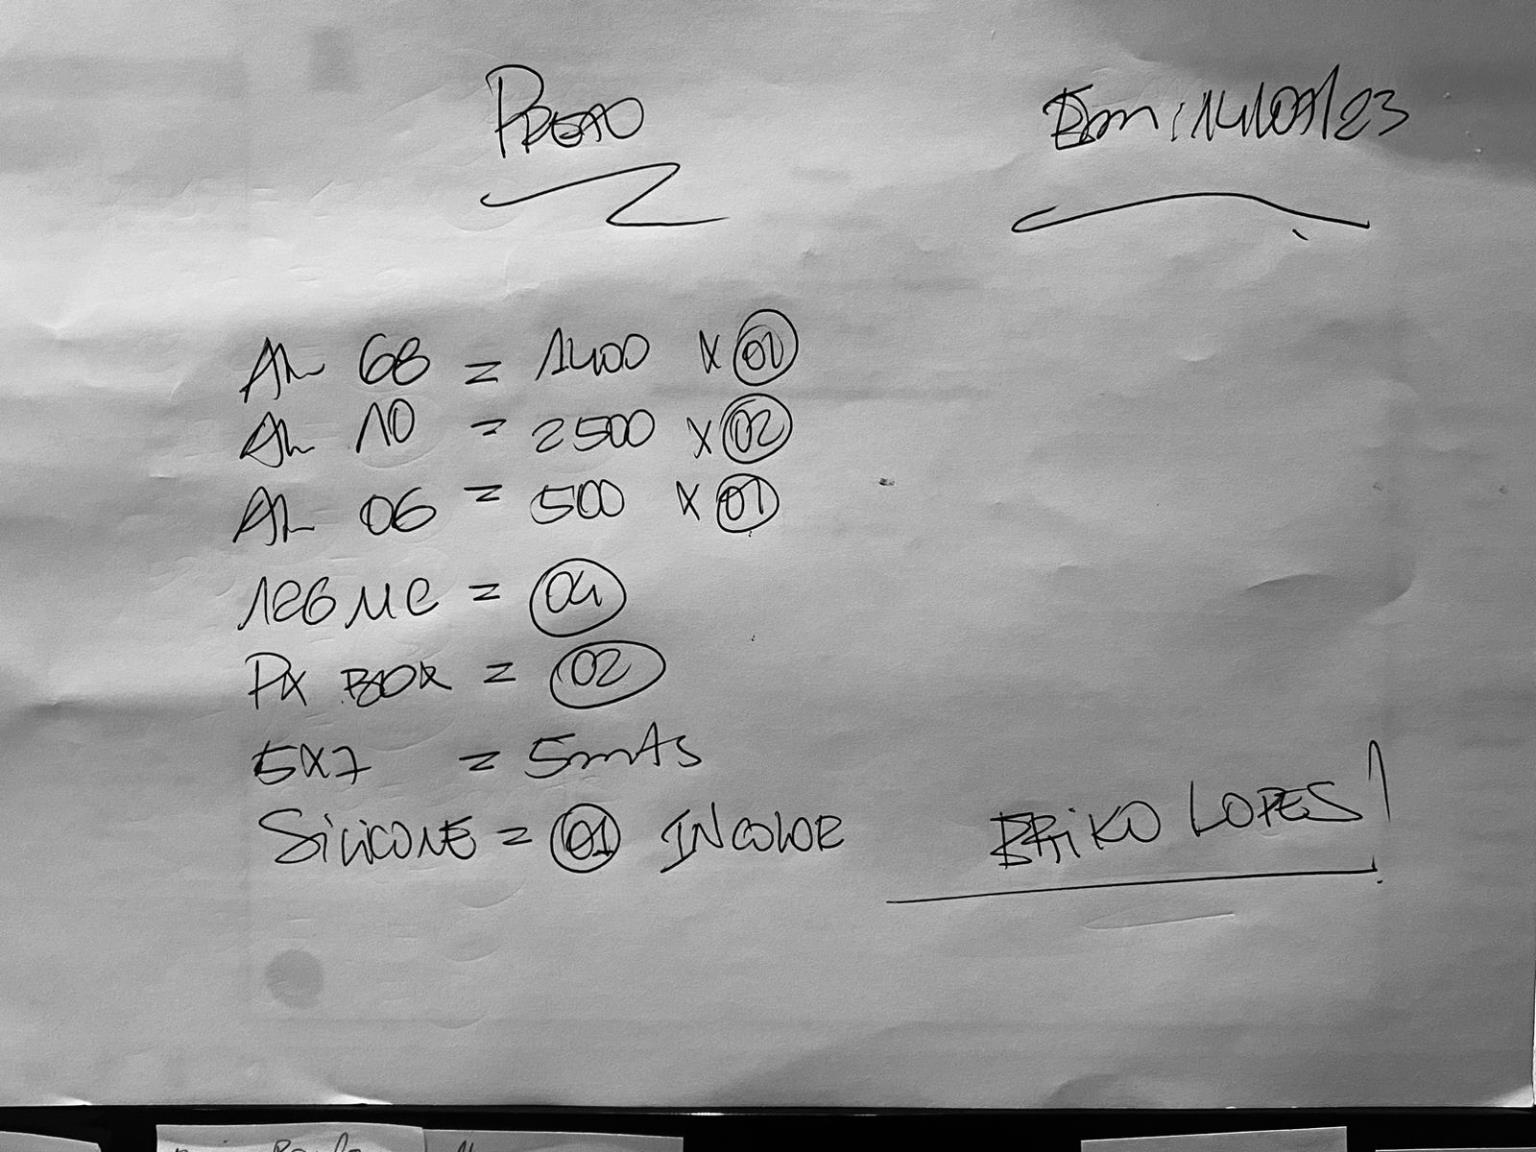 Preto Em: 14/09/23
AL 68 = 1400 x 01
AL 10 = 2500 x 02
AL 06 = 500 x 01
126 MC = 04
PX BOX = 02
5x7 = 5mts
Silicone = 01 INCOLOR
ERIKO LOPES!